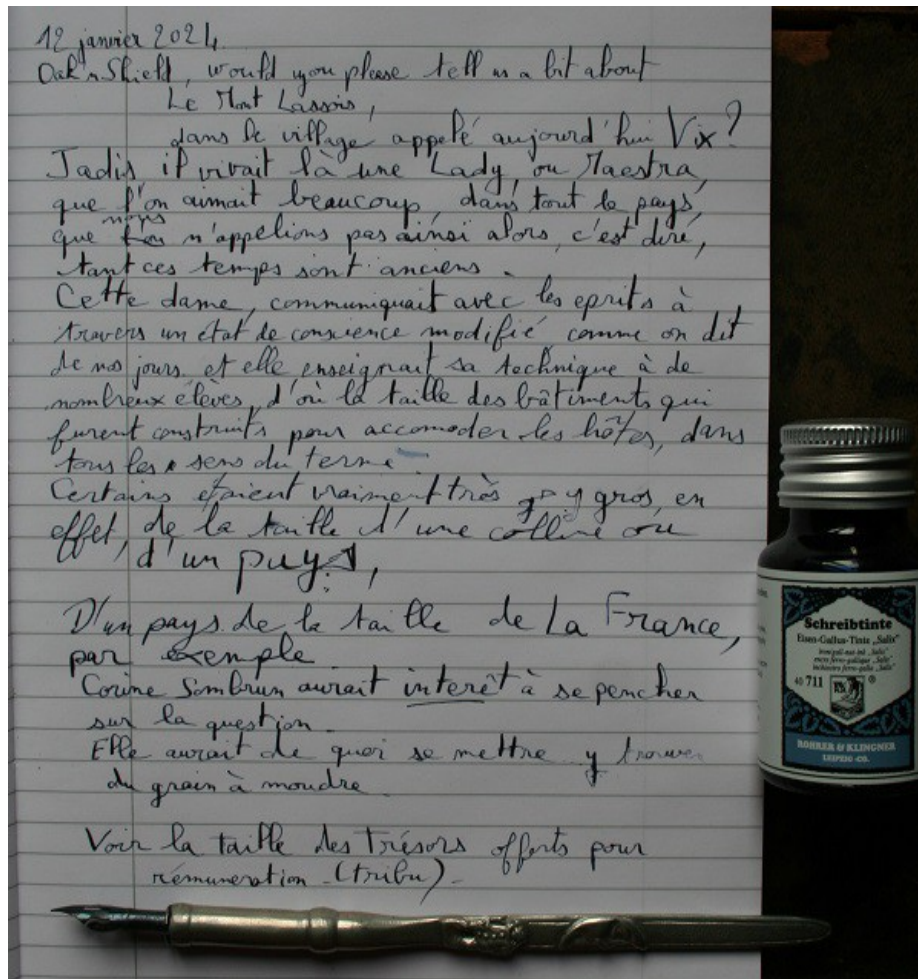 12 janvier 2024.
Oak'n Shield, would you please tell us a bit about
Le Mont Lassois,
dans le village appelé aujourd'hui Vix?
Jadis il vivait là une Lady, ou Maestra,
que l'on aimait beaucoup, dans tout le pays,
nous
que n'appelions pas ainsi alors, c'est dire,
tant ces temps sont anciens.
Cette dame, communiquait avec les eprits à
travers un état de conscience modifié comme on dit
de nos jours et elle enseignait sa technique à de
nombreux élèves, d'où la taille des bâtiments qui
furent construits pour accomoder les hôtes, dans
tous les sens du terme
Certains étaient vraiment très gros, en
effet, de la taille d'une colline ou
d'un puy,
D'un pays de la taille de la France,
par exemple
Corine Sombrun aurait interêt à se pencher
sur la question.
Elle aurait de quoi se mettre y trouver
du grain à moudre
Voir la taille des Trésors offerts pour
rémuneration (tribu).
Schreibtinte
Eisen-Gallus-Tinte „Salix"
40 711
®
ROHRER & KLINGNER
LEIPZIG-CO.